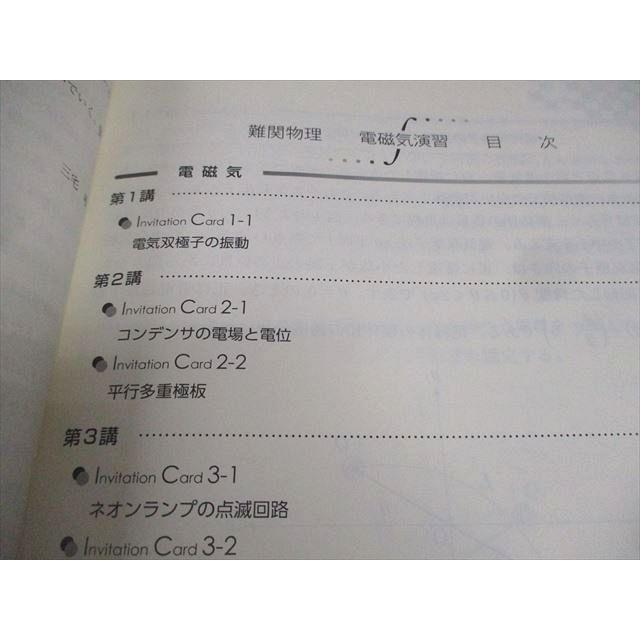 難関物理 電磁気演習 目次
電磁気
第1講
Invitation Card 1-1
電気双極子の振動
第2講
Invitation Card 2-1
コンデンサの電場と電位
Invitation Card 2-2
平行多重極板
第3講
Invitation Card 3-1
ネオンランプの点滅回路
Invitation Card 3-2